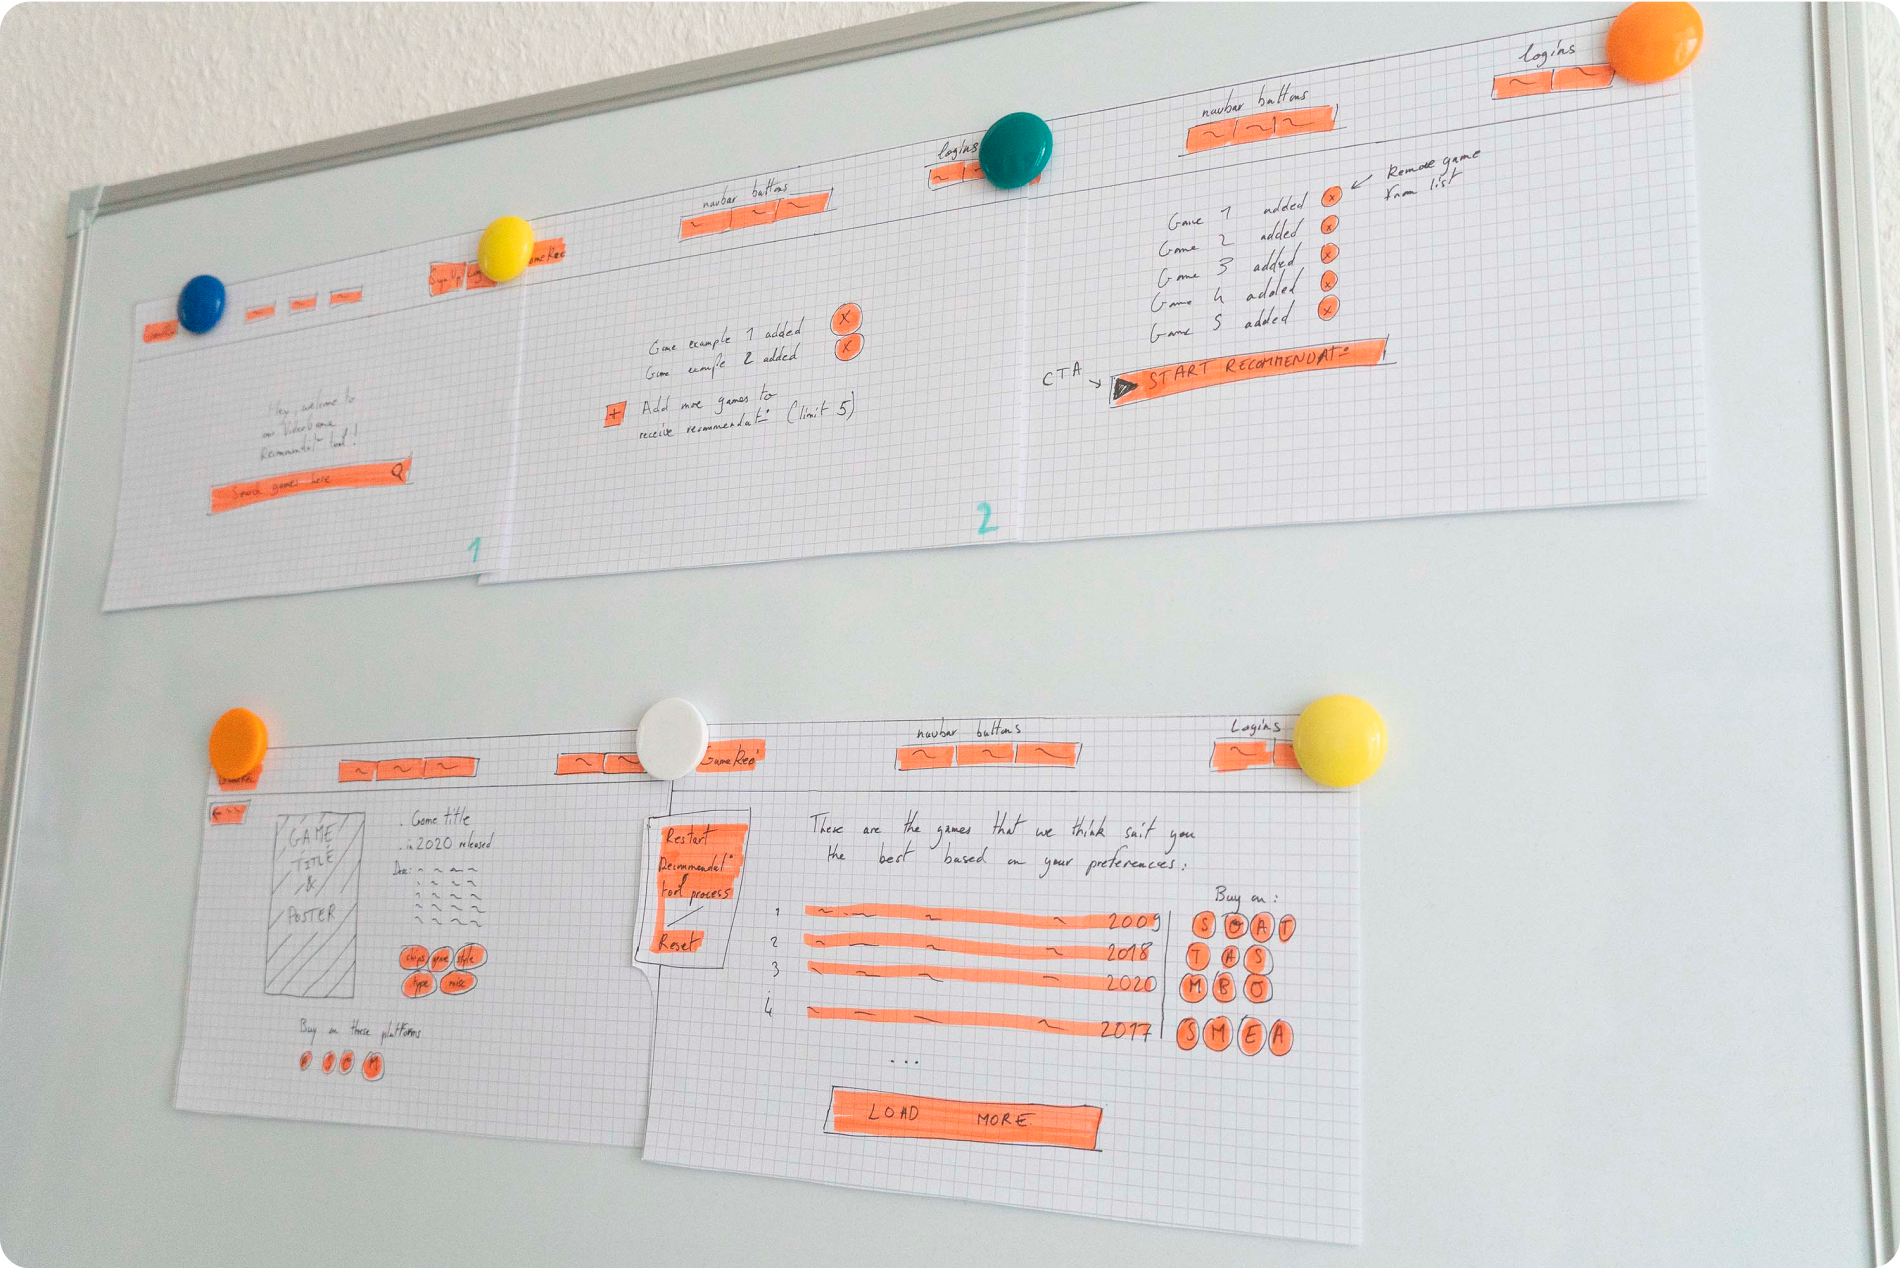 Sign Up
Hey, welcome to
our VideoGame
Recommendat° tool!
Search games here
1
GameRec
navbar buttons
logins
Game example 1 added x
Game example 2 added x
+ Add more games to
receive recommendat° (limit 5)
2
navbar buttons
logins
Game 1 added x
Remove game
from list
Game 2 added x
Game 3 added x
Game 4 added x
Game 5 added x
CTA
START RECOMMENDAT°
GAME
TITLE
&
POSTER
. Game title
. in 2020 released
Desc:
chips game style
type misc
Buy on these platforms
GameRec
navbar buttons
Logins
Restart
Recommendat°
tool process
Reset
These are the games that we think suit you
the best based on your preferences:
Buy on:
1 2009 S O A T
2 2018 T A S
3 2020 M B O
4 2017 S M E A
...
LOAD MORE